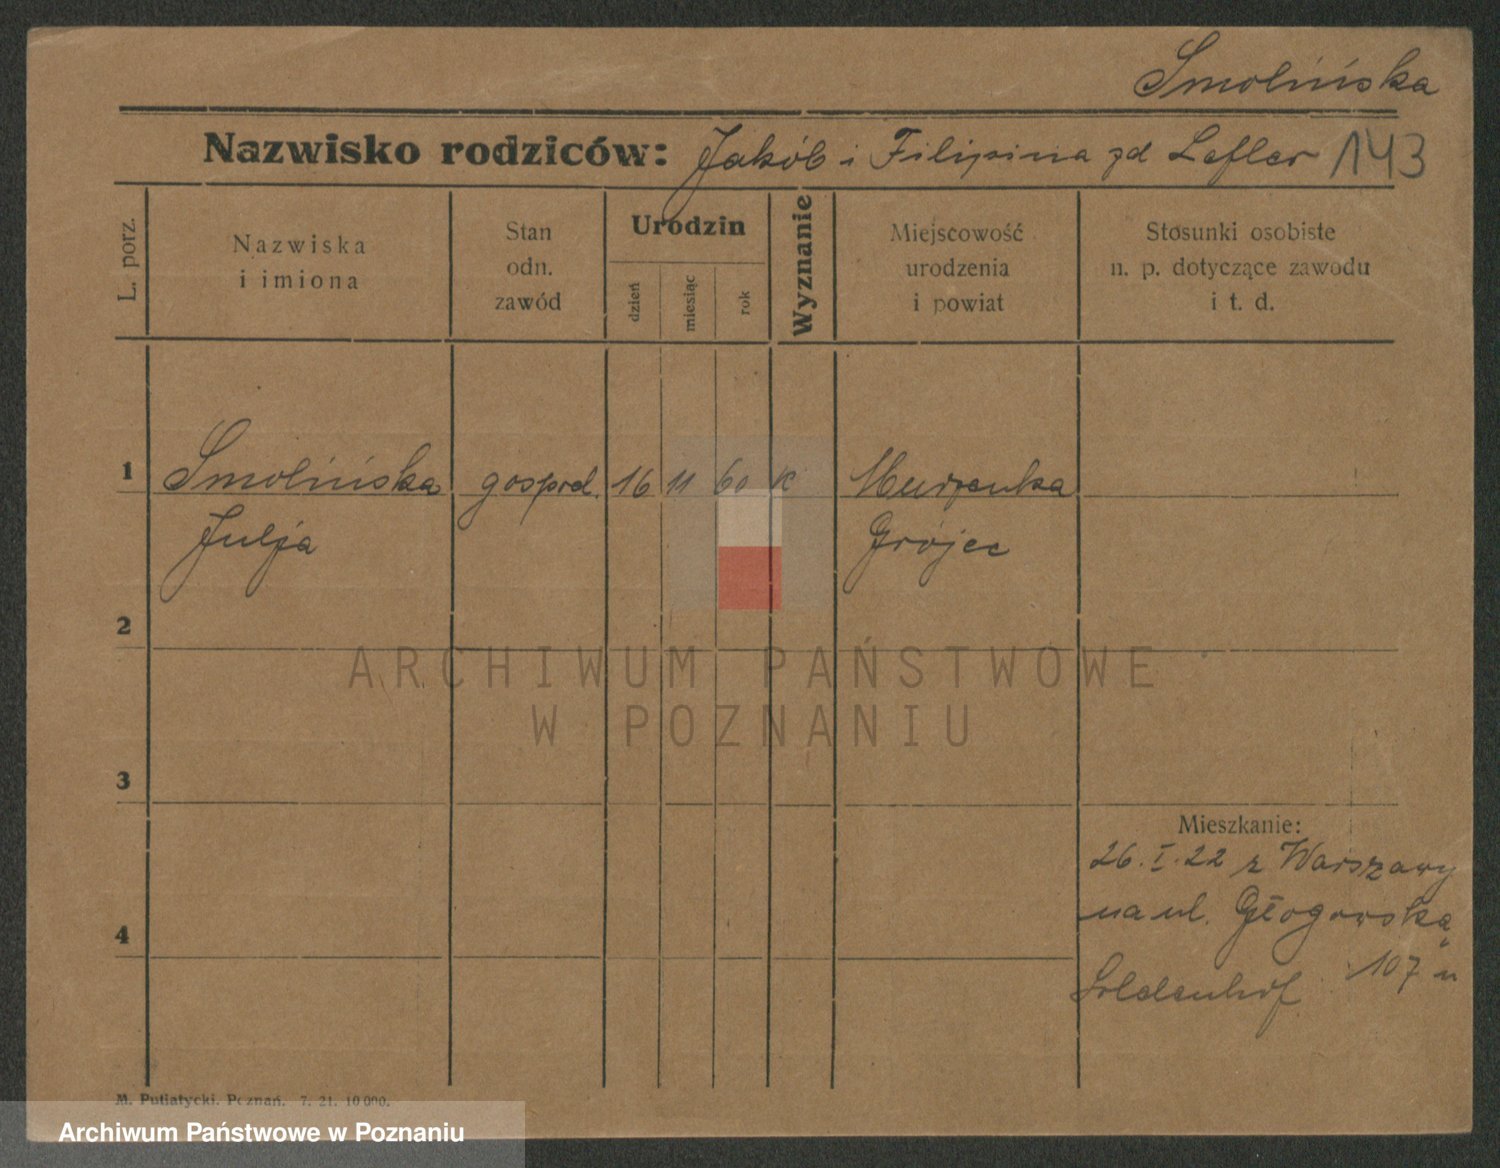 Smolińska
Nazwisko rodziców: Jakób i Filipina zd Lefler 143
L. porz.
Nazwiska
i imiona
Stan
odn.
zawód
Urodzin
dzień
miesiąc
rok
Wyznanie
Miejscowość
urodzenia
i powiat
Stosunki osobiste
n. p. dotyczące zawodu
i t. d.
1 Smolińska gospod. 16 11 60 K
Julja Grójec
2
ARCHIWUM PAŃSTWOWE
W POZNANIU
3
Mieszkanie:
26.I.22 z Warszawy
na ul. Głogowską
107 u
4
M. Putiatycki. Poznań. 7. 21. 10 000.
Archiwum Państwowe w Poznaniu